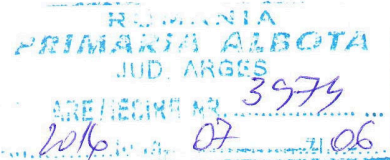 ROMANIA
PRIMARIA ALBOTA
JUD. ARGES
NR. 3974
2016 07 06